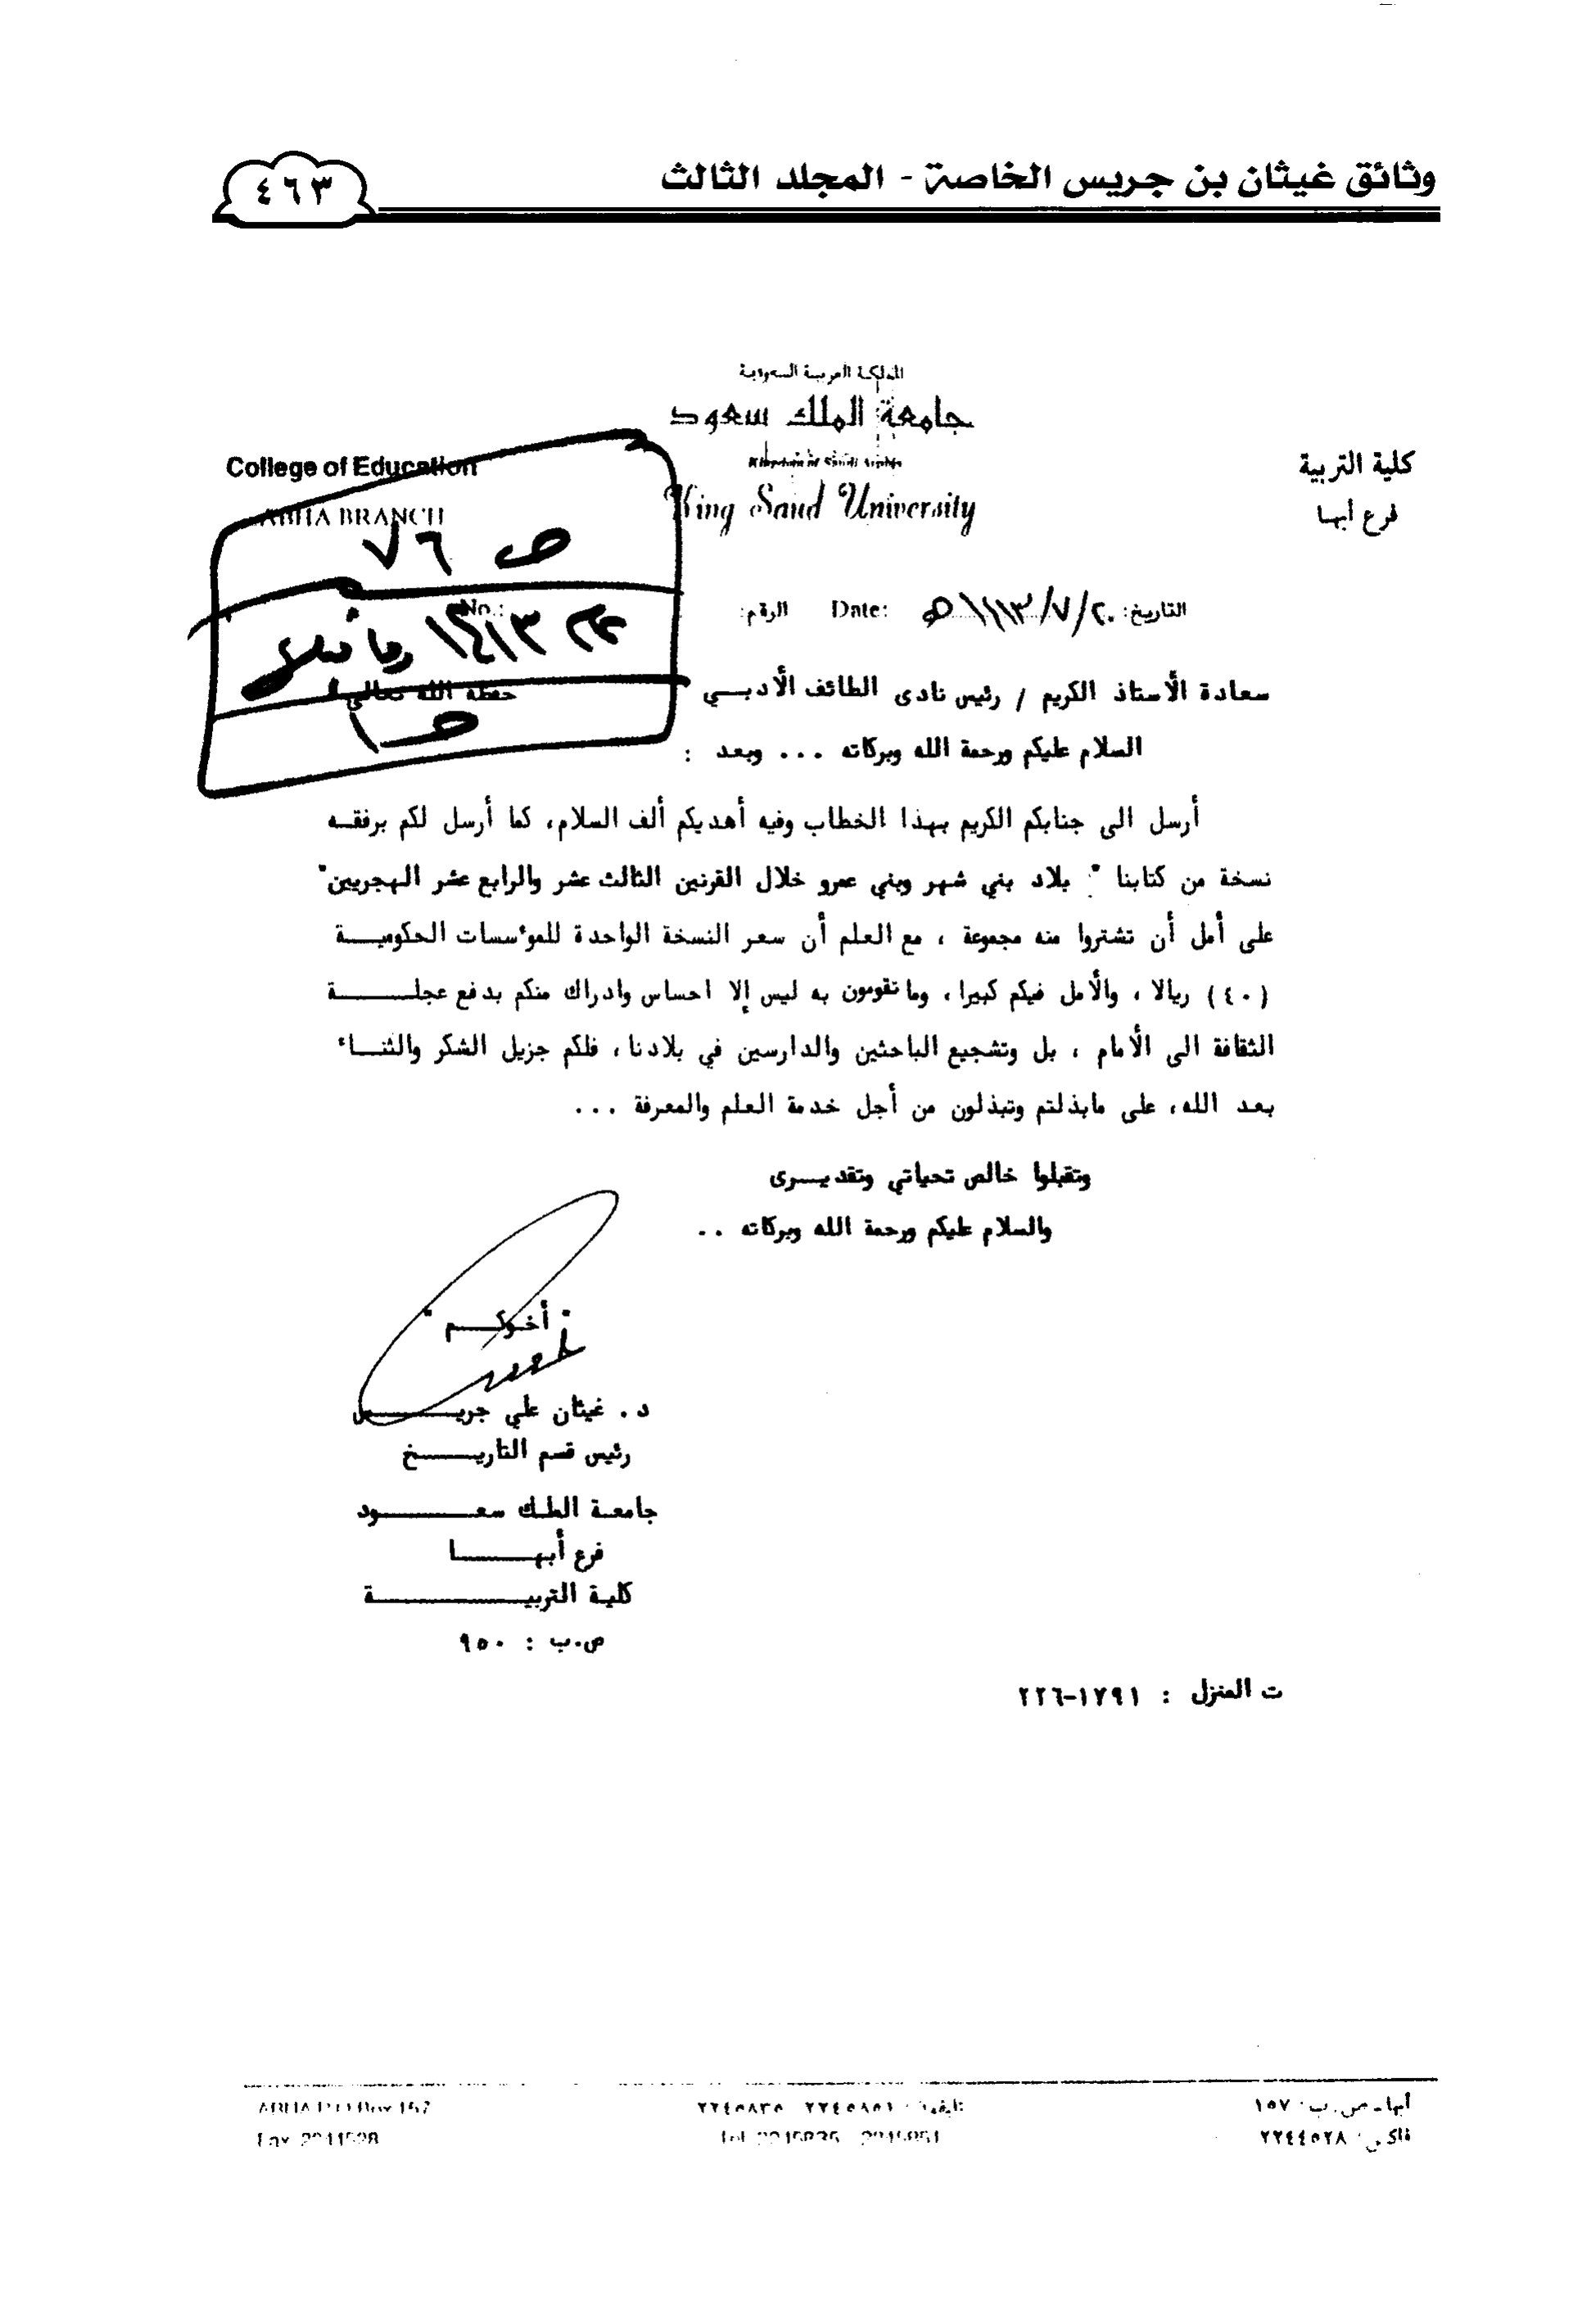 وثائق غيثان بن جريس الخاصة - المجلد الثالث
٤٦٣
المملكة العربية السعودية
جامعة الملك سعود
King Saud University
كلية التربية
فرع أبها
College of Education
ABHA BRANCH
ص ٧٦
التاريخ: ٢٠/٧/ Date: الرقم: No.:
سعادة الأستاذ الكريم / رئيس نادى الطائف الأدبــي حفظه الله تعالى
السلام عليكم ورحمة الله وبركاته ... وبعد :
أرسل الى جنابكم الكريم بهذا الخطاب وفيه أهديكم ألف السلام، كما أرسل لكم برفقــه
نسخة من كتابنا " بلاد بني شهر وبني عمرو خلال القرنين الثالث عشر والرابع عشر الهجريين"
على أمل أن تشتروا منه مجموعة ، مع العلم أن سعر النسخة الواحدة للموءسسات الحكوميــة
(٤٠) ريالا ، والأمل فيكم كبيرا ، وما تقومون به ليس إلا احساس وادراك منكم بدفع عجلــــة
الثقافة الى الأمام ، بل وتشجيع الباحثين والدارسين في بلادنا ، فلكم جزيل الشكر والثنــاء
بعد الله، على مابذلتم وتبذلون من أجل خدمة العلم والمعرفة ...
وتقبلوا خالص تحياتي وتقديــرى
والسلام عليكم ورحمة الله وبركاته ..
" أخوكــم "
د . غيثان علي جريـــــس
رئيس قسم التاريـــخ
جامعة الملك سعــــــود
فرع أبهـــــا
كلية التربيــــــــة
ص.ب : ٩٥٠
ت المنزل : ١٧٩١-٢٢٦
أبها ـ ص. ب: ١٥٧
فاكس: ٢٢٤٤٥٢٨